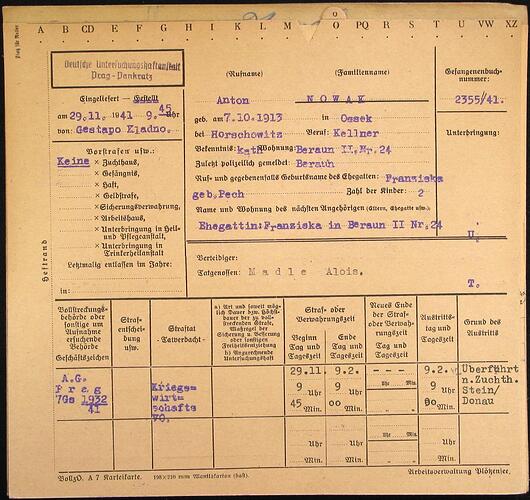 A BCD E F G H I K L M N O PQ R S T U VW XZ
Deutsche Untersuchungshaftanstalt
Prag-Pankratz
Eingeliefert – Gestellt
am 29.11. 1941 9.45 Uhr
von: Gestapo Kladno.
(Rufname) (Familienname)
Anton NOWAK
geb. am 7.10.1913 in Ossek
bei Horschowitz Beruf: Kellner
Bekenntnis: kath Wohnung: Beraun II, Nr. 24
Zuletzt polizeilich gemeldet: Beraun
Ruf- und gegebenenfalls Geburtsname des Ehegatten: Franziska
geb. Pech Zahl der Kinder: 2
Name und Wohnung des nächsten Angehörigen (Eltern, Ehegatte usw.):
Ehegattin: Franziska in Beraun II Nr. 24
Gefangenenbuch-
nummer:
2355/41.
Unterbringung:
U.
Vorstrafen usw.:
Keine × Zuchthaus,
× Gefängnis,
× Haft,
× Geldstrafe,
× Sicherungsverwahrung,
× Arbeitshaus,
× Unterbringung in Heil-
und Pflegeanstalt,
× Unterbringung in
Trinkerheilanstalt
Letztmalig entlassen im Jahre:
in:
Heftrand
Verteidiger:
Tatgenossen: Madle Alois.
T.
Vollstreckungs-
behörde oder
sonstige um
Aufnahme
ersuchende
Behörde
Geschäftszeichen
Straf-
entscheidung
usw.
Straftat
- Tatverdacht -
a) Art und soweit mög-
lich Dauer bzw. Höchst-
dauer der zu voll-
streckenden Strafe,
Maßregel der
Sicherung u. Besserung
oder sonstigen
Freiheitsentziehung
b) Anzurechnende
Untersuchungshaft
Straf- oder
Verwahrungszeit
Beginn
Tag und
Tageszeit
Ende
Tag und
Tageszeit
Neues Ende
der Straf-
oder Verwah-
rungszeit
Tag und
Tageszeit
Austritts-
tag und
Tageszeit
Grund des
Austritts
A.G.
Prag
7Gs 1932
41
Kriegs=
wirt=
schafts
VO.
29.11. 9.2. - - - 9.2.
9 Uhr 9 Uhr Uhr Min. 9 Uhr
45 Min. 00 Min. Uhr Min. 00 Min.
Überführt
n.Zuchth.
Stein/
Donau
Uhr Uhr Uhr Min. Uhr
Min. Min. Uhr Min. Min.
VollzO. A 7 Karteikarte. 198×210 mm Manilakarton (haft). Arbeitsverwaltung Plötzensee.